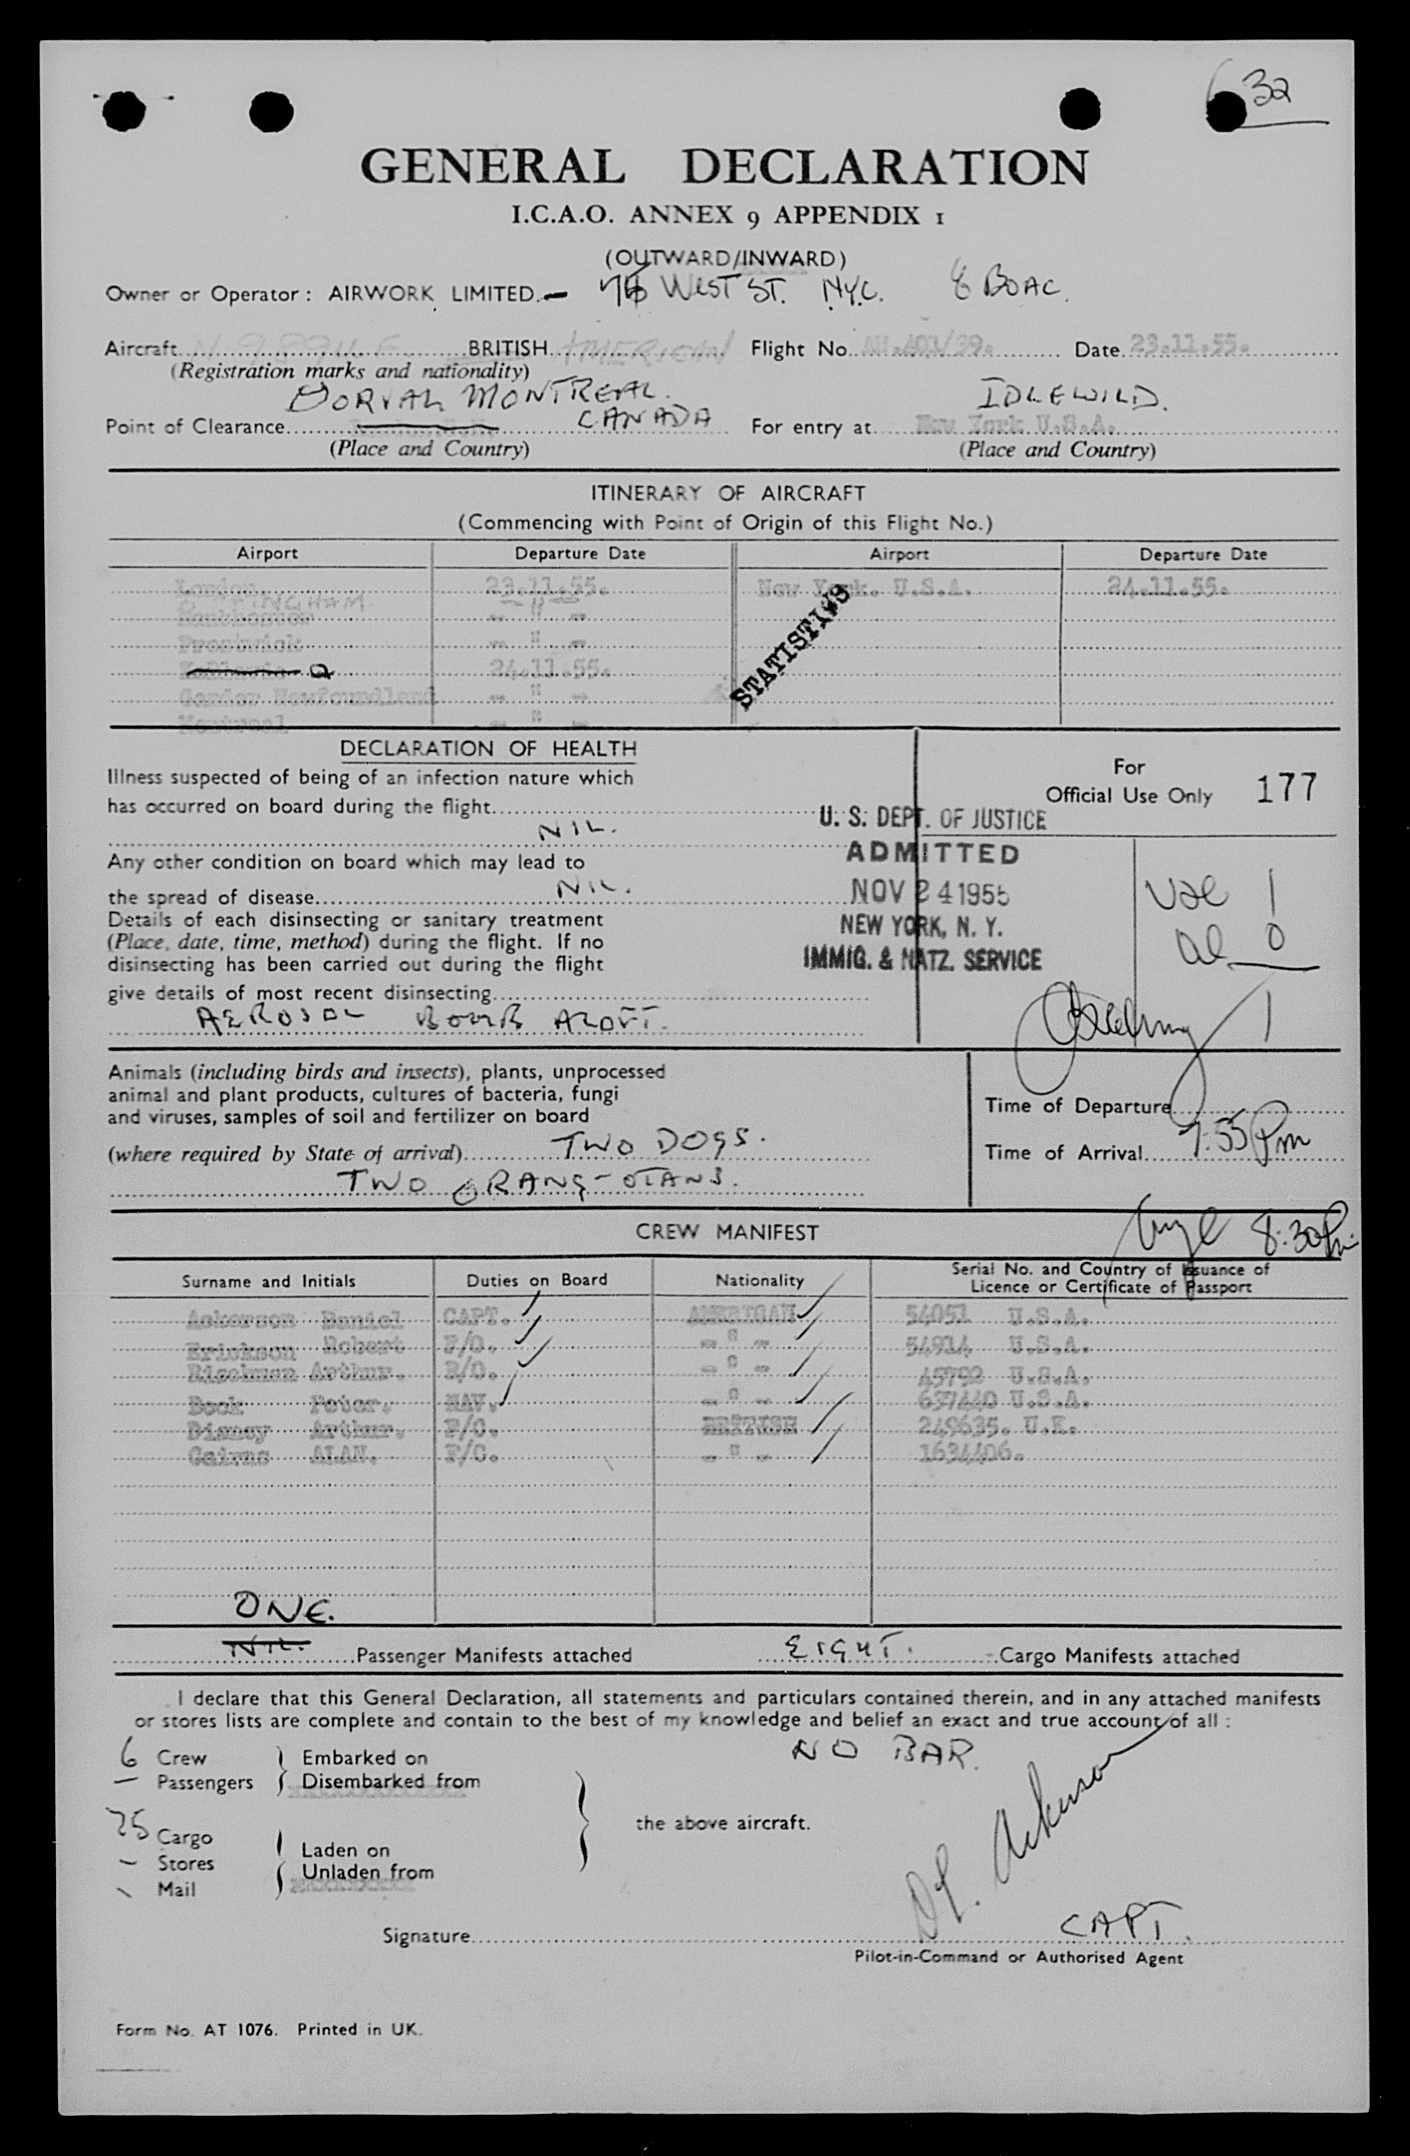 32
GENERAL DECLARATION
I.C.A.O. ANNEX 9 APPENDIX 1
(OUTWARD/INWARD)
Owner or Operator: AIRWORK LIMITED.- WEST ST. N.Y.C. & BOAC.
Aircraft BRITISH AMERICAN Flight No. AW.401/39. Date 23.11.55.
(Registration marks and nationality)
DORVAL MONTREAL. IDLEWILD.
Point of Clearance CANADA For entry at New York U.S.A.
(Place and Country) (Place and Country)
ITINERARY OF AIRCRAFT
(Commencing with Point of Origin of this Flight No.)
Airport Departure Date Airport Departure Date
London 23.11.55. New York. U.S.A. 24.11.55.
Manchester - " -
Prestwick - " -
24.11.55.
Gander Newfoundland - " -
Montreal - " -
STATISTICS
DECLARATION OF HEALTH
Illness suspected of being of an infection nature which
has occurred on board during the flight
NIL.
Any other condition on board which may lead to
the spread of disease NIL.
Details of each disinsecting or sanitary treatment
(Place, date, time, method) during the flight. If no
disinsecting has been carried out during the flight
give details of most recent disinsecting
AEROSOL BOMB ALOFT.
For
Official Use Only 177
U. S. DEPT. OF JUSTICE
ADMITTED
NOV 24 1955
NEW YORK, N. Y.
IMMIG. & NATZ. SERVICE
USC 1
al 0
1
Animals (including birds and insects), plants, unprocessed
animal and plant products, cultures of bacteria, fungi
and viruses, samples of soil and fertilizer on board
(where required by State of arrival) TWO DOGS.
TWO ORANG-OTANS.
Time of Departure
Time of Arrival 7:55 Pm
8:30 Pm
CREW MANIFEST
Surname and Initials Duties on Board Nationality Serial No. and Country of Issuance of Licence or Certificate of Passport
Ackerson Daniel CAPT. AMERICAN 54051 U.S.A.
Erickson Robert F/O. - " - 54914 U.S.A.
Arthur. R/O. - " - 45792 U.S.A.
Book Peter. NAV. - " - 637440 U.S.A.
Disney Arthur. F/C. BRITISH 249635. U.K.
Cairns ALAN. F/C. - " - 1634406.
ONE.
NIL. Passenger Manifests attached EIGHT. Cargo Manifests attached
I declare that this General Declaration, all statements and particulars contained therein, and in any attached manifests
or stores lists are complete and contain to the best of my knowledge and belief an exact and true account of all :
NO BAR.
6 Crew } Embarked on
- Passengers } Disembarked from
the above aircraft.
25 Cargo Laden on
- Stores Unladen from
- Mail
Signature CAPT.
Pilot-in-Command or Authorised Agent
Form No. AT 1076. Printed in UK.